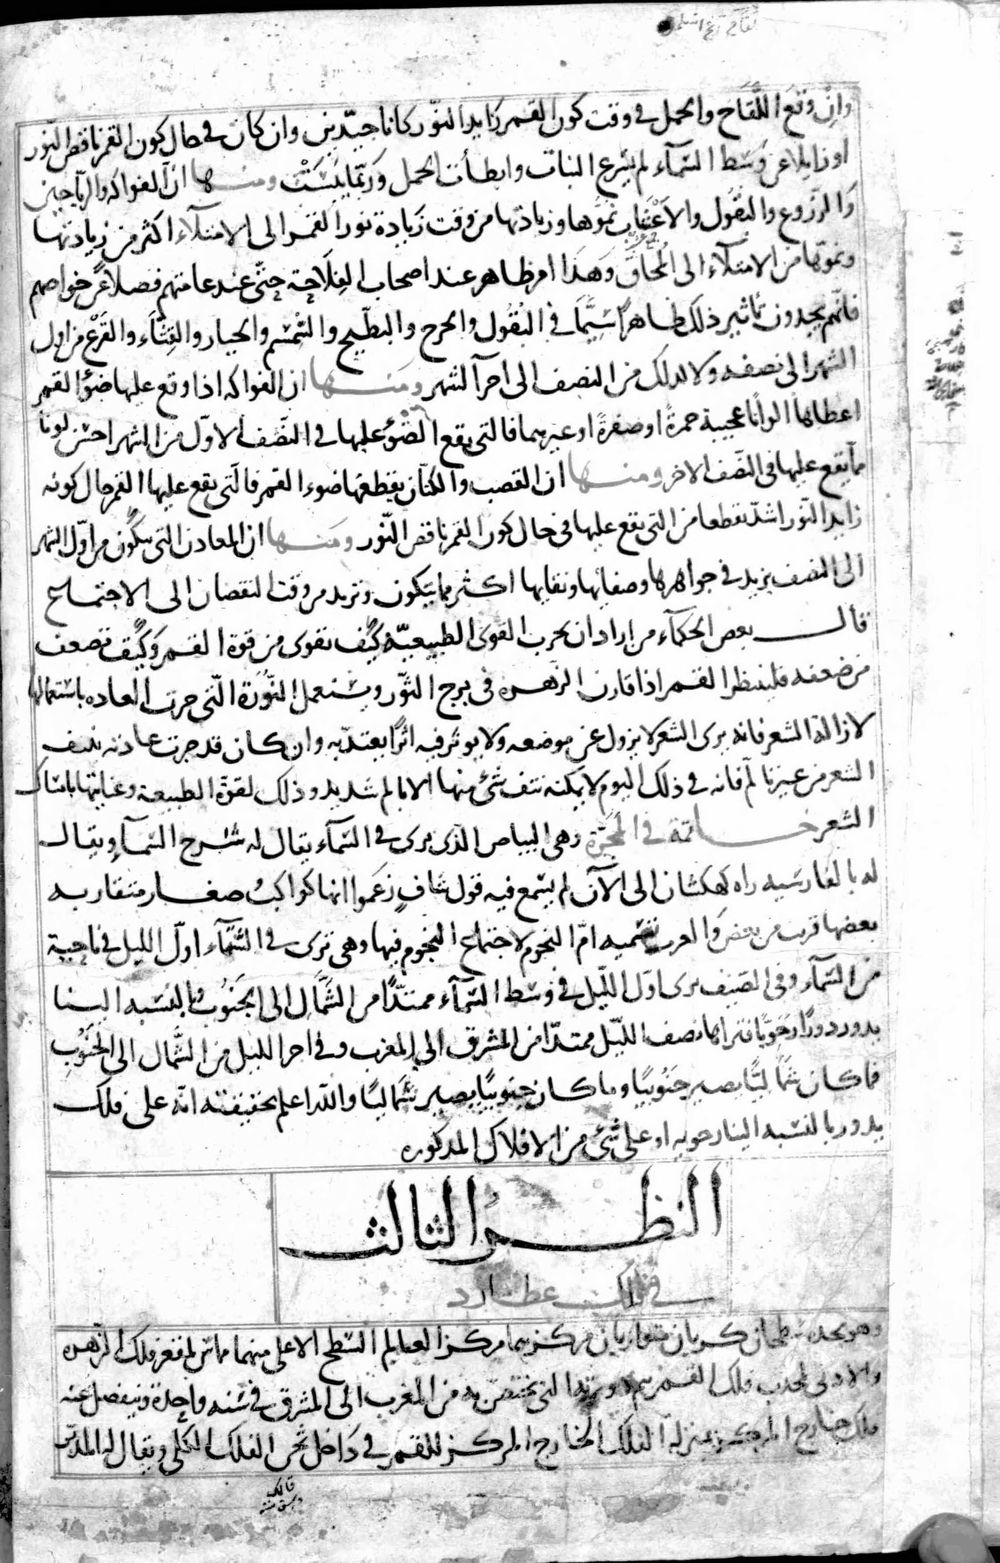 وان وقع اللقاح والحمل فى وقت كون القمر زايد النّور كانا جيّدين وان كان فى حال كون القمر ناقص النّور
او زايلا عن وسط السّمآء لم يسرع النبات وابطأت الحمل وربّما يبست ومنها ان الفواكه والرياحين
والزّروع والبقول والاعشاب نموّها وزيادتها من وقت زيادة نور القمر الى الامتلآء اكثر من زيادتها
ونموّها من الامتلآء الى المحاق وهذا امر ظاهر عند اصحاب الفلاحة حتّى عند عامتهم فضلا عن خواصهم
فانّهم يجدون تاثير ذلك ظاهرا سيّما فى البقول والبطيخ والسّمسم والخيار والقثّاء والقرع من اول
الشهر الى نصفه ولا كذلك من النصف الى اخر الشهر ومنها ان الفواكه اذا وقع عليها ضوء القمر
اعطاها الوانا عجيبة حمرة او صفرة او غيرهما فالتى يقع الضّوء عليها فى النّصف الاوّل من الشهر احسن لونا
مما يقع عليها فى النّصف الاخر ومنها ان القصب والكتان يقطعها ضوء القمر فالّتى يقع عليها القمر حال كونه
زايد النّور اشدّ تقطعا من التى يقع عليها فى حال كون القمر ناقص النّور ومنها ان المعادن التى تتكون من اوّل الشهر
الى النصف يزيد فى جواهرها وصفائها ونقايها اكثر مما يتكون وتزيد من وقت النقصان الى الاجتماع
قال بعض الحكمآء من اراد ان يجرب القوى الطبيعيّة كيف تقوى من قوة القمر وكيف تضعف
من ضعفه فلينظر القمر اذا قارن الزهره فى برج الثّور ويستعمل النّورة الّتى جرت العاده باستعمالها
لازالة الشعر فانه يرى الشعر لا يزول عن موضعه ولا يوثر فيه اثرا يعتدّ به وان كان قد جرت عادته نتف
الشعر من غير تالم فانه فى ذلك اليوم لا يمكنه نتف شئ منها الا بالم شديد وذلك لقوة الطبيعة وعنايتها بامساك
الشعر خاتمة فى المجرّة وهى البياض الّذى يرى فى السّمآء يقال له شرج السّمآء ويقال
له بالفارسيه راه كهكشان الى الآن لم يسمع فيه قول شاف زعموا انها كواكب صغار متقاربه
بعضها قريب من بعض والعرب تسميه امّ النجوم لاجتماع النجوم فيها وهى ترى فى الشّتآء اوّل الليل فى ناحية
من السّمآء وفى الصّيف يرى اوّل اللّيل فى وسط السّمآء ممتدّا من الشّمال الى الجنوب وبالنسبه الينا
يدور دورا رحويّا فتراها نصف اللّيل ممتدّا من المشرق الى المغرب وفى اخر الليل من الشّمال الى الجنوب
فما كان شماليّا يصير جنوبيّا وما كان جنوبيّا يصير شماليّا والله اعلم بحقيقته انه على فلك
يدور بالنسبه الينا رحويه او على شئ من الافلاك المذكوره
النظر الثالث
فى فلك عطارد
وهو يحده سطحان كرويان متوازيان مركزهما مركز العالم السّطح الاعلى منهما مماسّ لمقعر فلك الزّهره
والادنى لمحدب فلك القمر التى تختصّ به من المغرب الى المشرق فى سنه واحدة وينفصل عنه
فلك خارج المركز بمنزلة الفلك الخارج المركز للقمر فى داخل ثخن الفلك الكلى ويقال له المدير